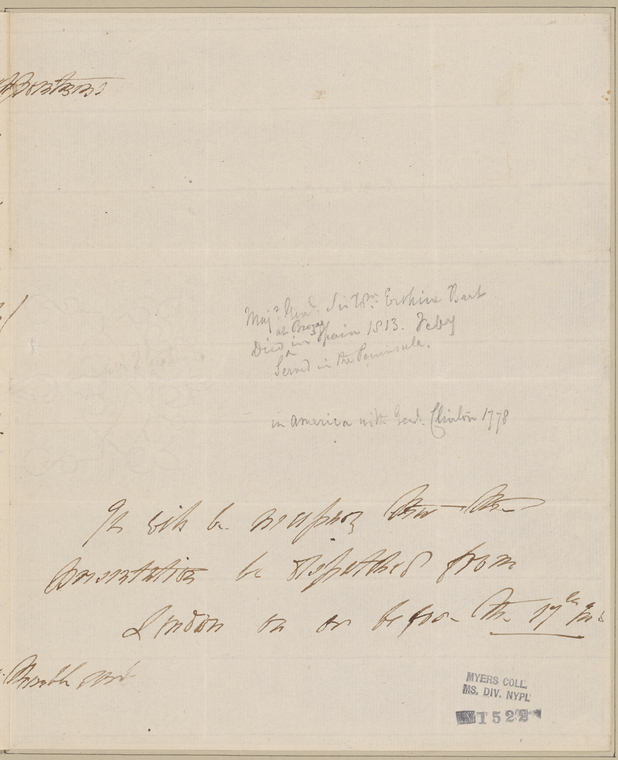 Majr. Genl. Sir Wm. Erskine Bart
at Brozas
Died in Spain 1813. Feby
Served in the Peninsula.
in America with Genl. Clinton 1778
It will be necessary that the
be dispatched from
London on or before the 17th
MYERS COLL.
MS. DIV. NYPL
1522